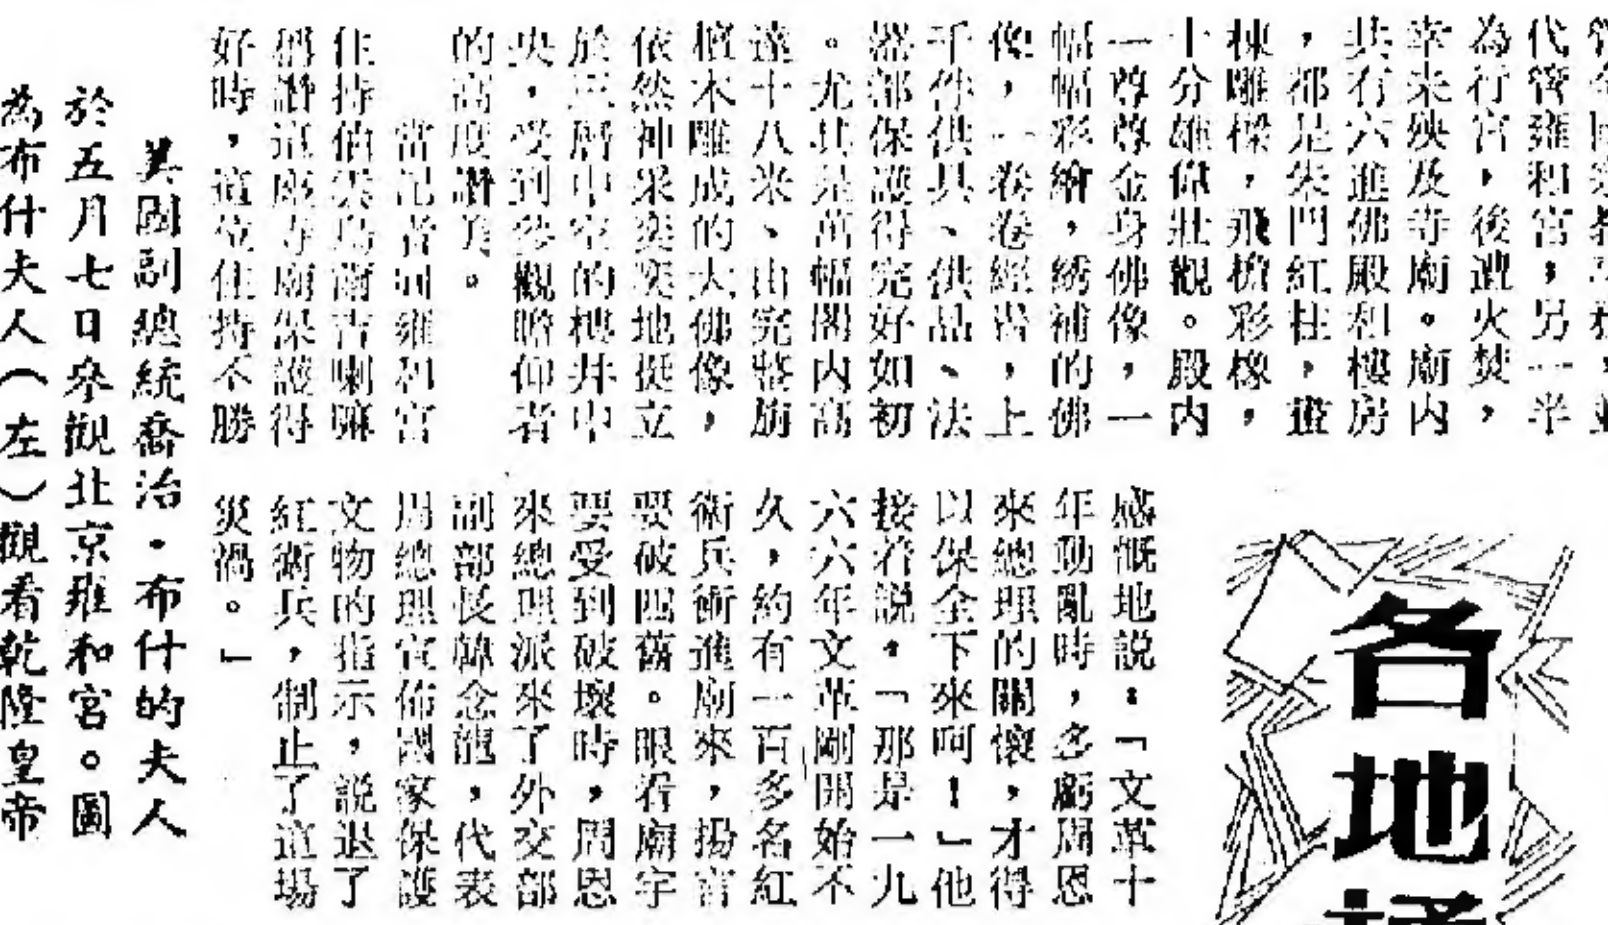 代管雍和宮，另一半
為行宮，後遭火焚，
幸未殃及寺廟。廟內
共有六進佛殿和樓房
，都是朱門紅柱，畫
棟雕樑，飛檐彩椽，
十分雄偉壯觀。殿內
一尊尊金身佛像，一
幅幅彩繪，綉補的佛
像，一卷卷經書，上
千件供具、供品、法
器都保護得完好如初
。尤其是萬幅閣內高
達十八米、由完整旃
檀木雕成的大佛像，
依然神采奕奕地挺立
於三層中空的樓井中
央，受到參觀瞻仰者
的高度讚美。
當記者向雍和宮
住持伯雲烏爾吉喇嘛
稱讚這座寺廟保護得
好時，這位住持不勝
感慨地説：「文革十
年動亂時，多虧周恩
來總理的關懷，才得
以保全下來呵！」他
接着説，「那是一九
六六年文革剛開始不
久，約有一百多名紅
衛兵衝進廟來，揚言
要破四舊。眼看廟宇
要受到破壞時，周恩
來總理派來了外交部
副部長韓念龍，代表
周總理宣佈國家保護
文物的指示，説退了
紅衛兵，制止了這場
災禍。」
美國副總統喬治·布什的夫人
於五月七日參觀北京雍和宮。圖
為布什夫人（左）觀看乾隆皇帝
各地